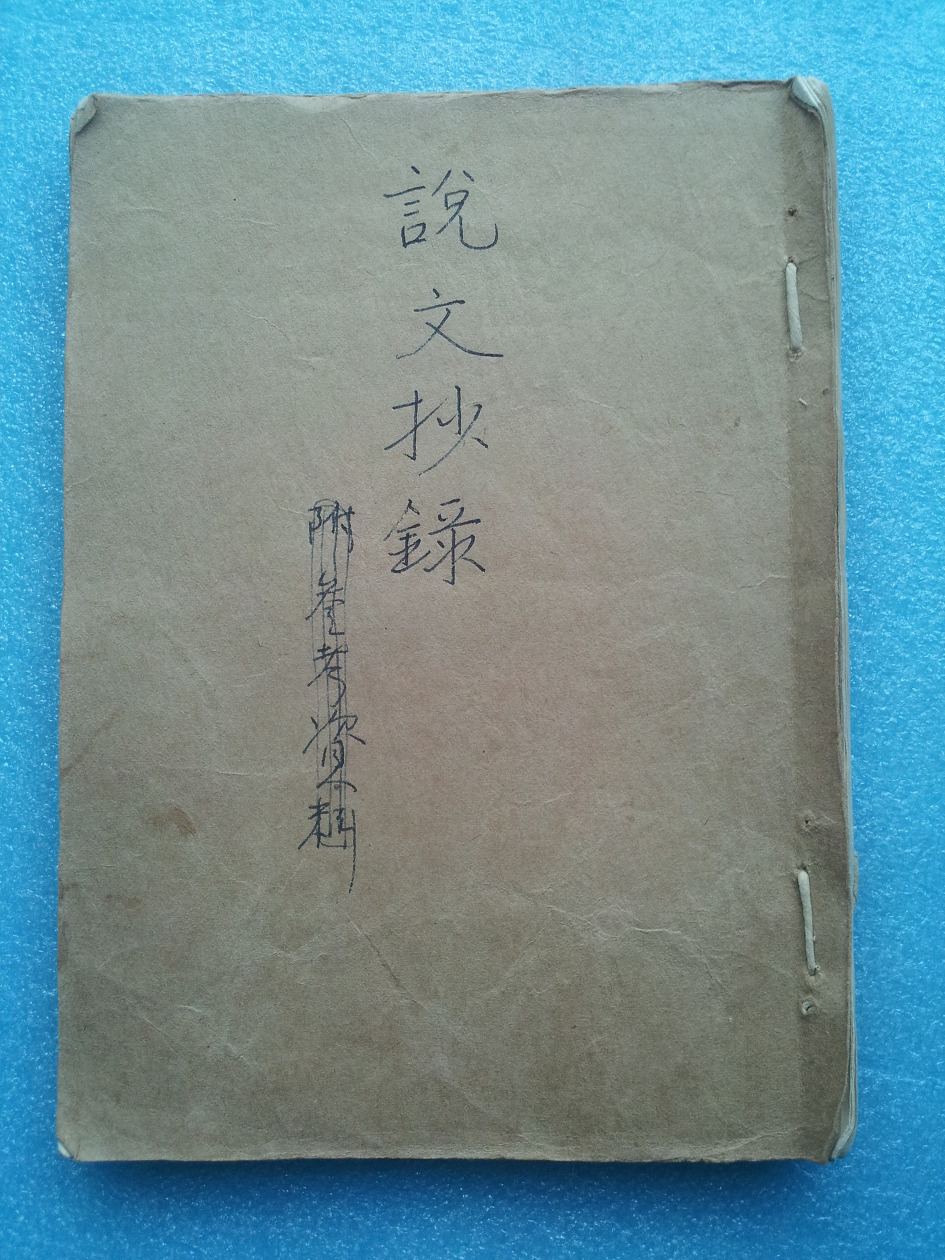 說文抄錄
附參考資料